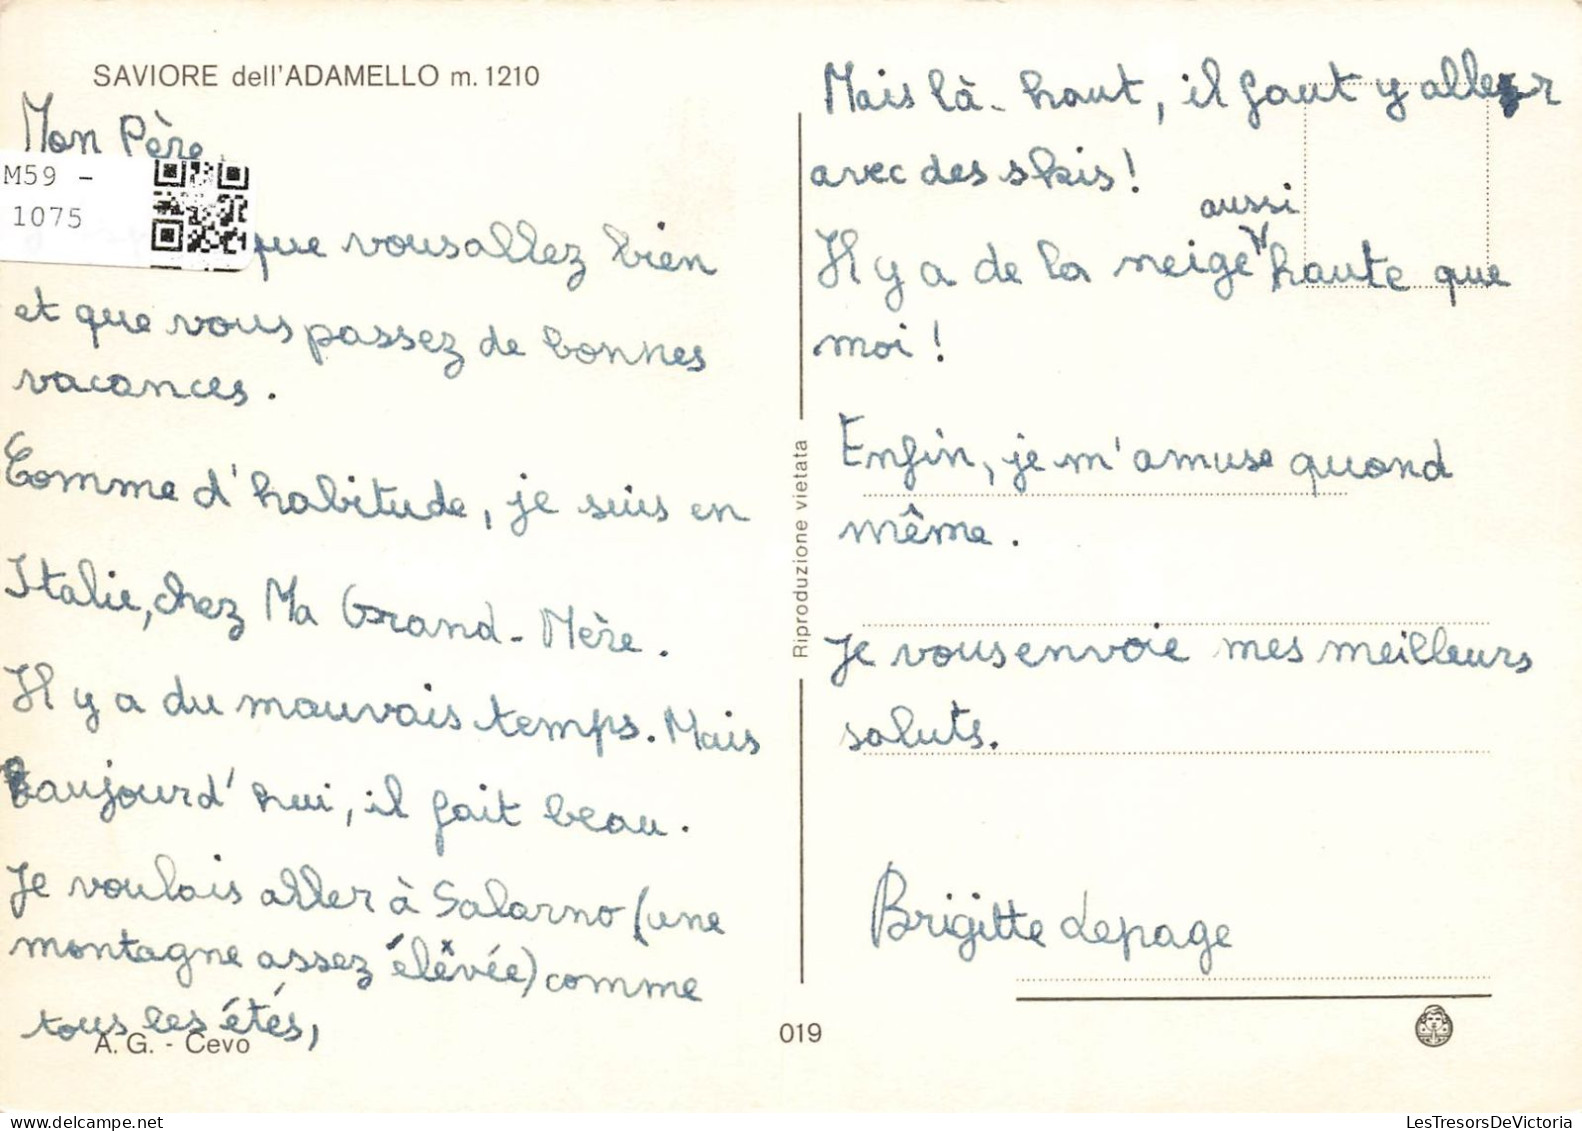 SAVIORE dell'ADAMELLO m. 1210
Mon Père,
M59 -
1075
que vous allez bien
et que vous passez de bonnes
vacances.
Comme d'habitude, je suis en
Italie, chez Ma Grand-Mère.
Il y a du mauvais temps. Mais
aujourd'hui, il fait beau.
Je voulais aller à Salarno (une
montagne assez élevée) comme
tous les étés,
A. G. - Cevo
Riproduzione vietata
019
Mais là-haut, il faut y aller
avec des skis!
aussi
Il y a de la neige haute que
moi!
Enfin, je m'amuse quand
même.
Je vous envoie mes meilleurs
saluts.
Brigitte Lepage
LesTresorsDeVictoria
www.delcampe.net